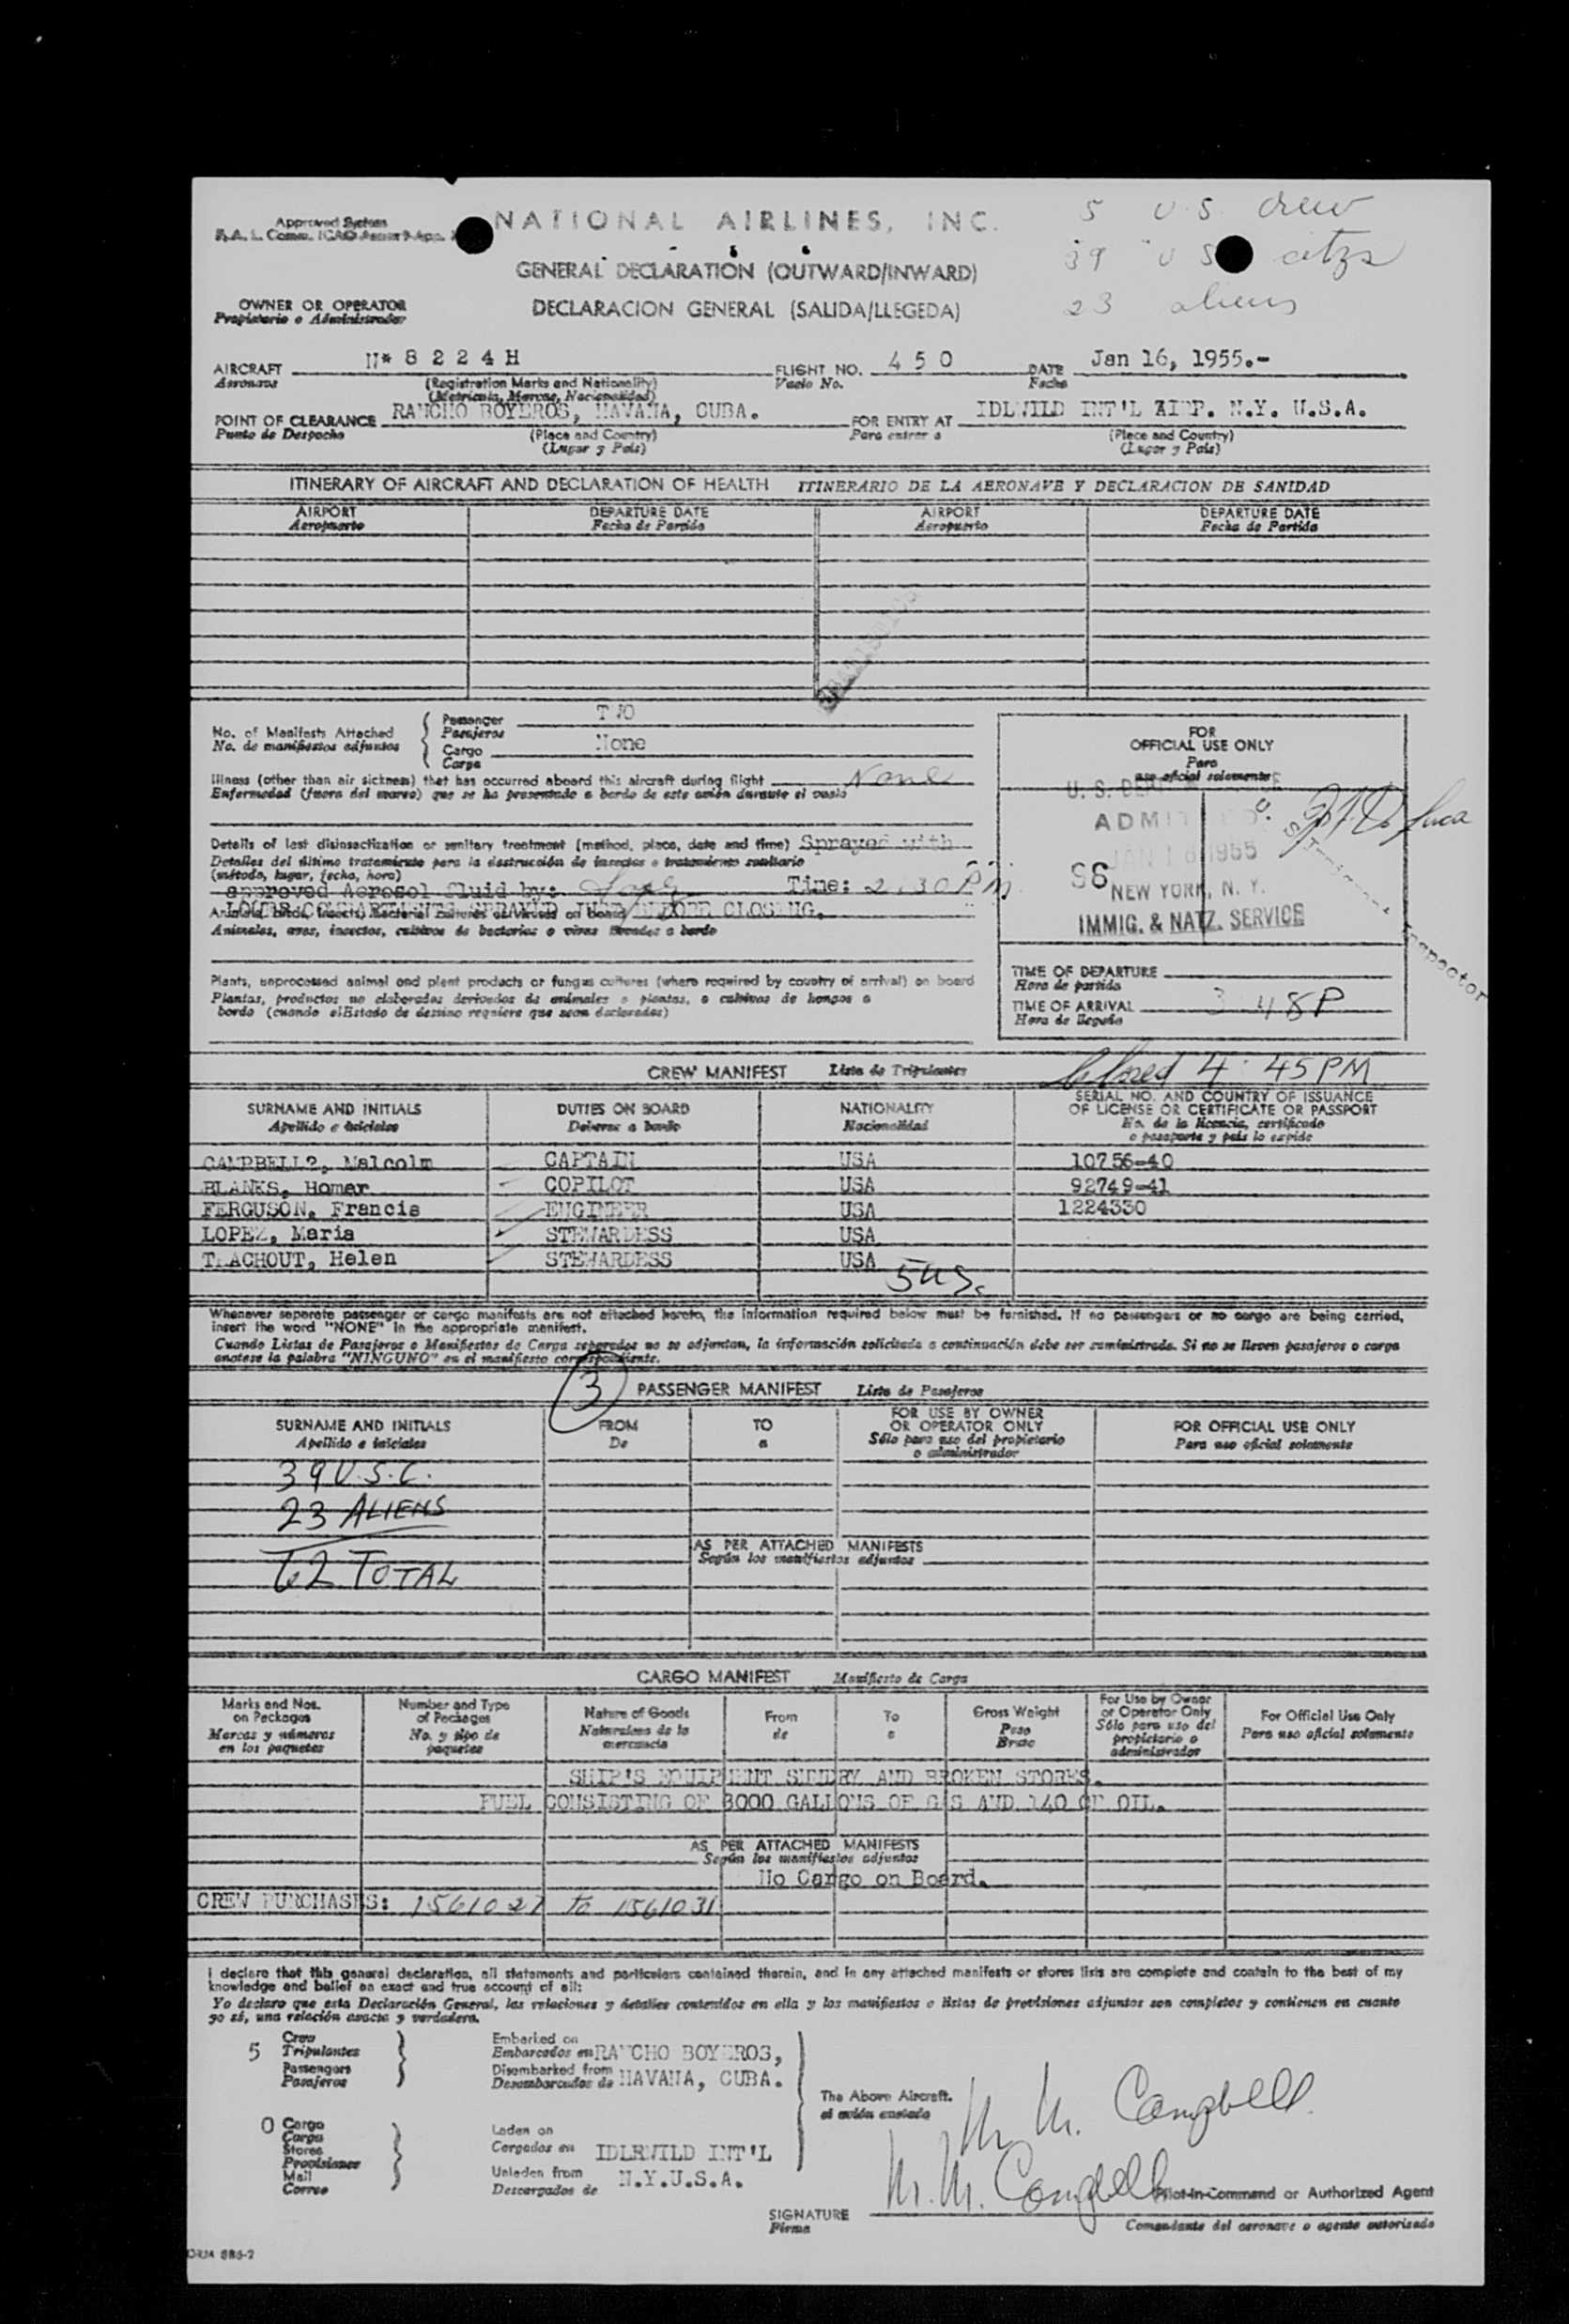 Approved System
NATIONAL AIRLINES, INC.
5 U.S. crew
39 U S citzs
23 aliens
GENERAL DECLARATION (OUTWARD/INWARD)
DECLARACION GENERAL (SALIDA/LLEGEDA)
OWNER OR OPERATOR
Propietario o Administrador
AIRCRAFT N* 8 2 2 4 H FLIGHT NO. 4 5 0 DATE Jan 16, 1955.-
Aeronave (Registration Marks and Nationality) Vuelo No. Fecha
(Matricula, Marcas, Nacionalidad)
POINT OF CLEARANCE RANCHO BOYEROS, HAVANA, CUBA. FOR ENTRY AT IDLWILD INT'L AIRP. N.Y. U.S.A.
Punto de Despacho (Place and Country) Para entrar a (Place and Country)
(Lugar y Pais) (Lugar y Pais)
ITINERARY OF AIRCRAFT AND DECLARATION OF HEALTH ITINERARIO DE LA AERONAVE Y DECLARACION DE SANIDAD
AIRPORT DEPARTURE DATE AIRPORT DEPARTURE DATE
Aeropuerto Fecha de Partida Aeropuerto Fecha de Partida
No. of Manifests Attached Passenger TWO
No. de manifiestos adjuntos Pasajeros
Cargo None
Carga
Illness (other than air sickness) that has occurred aboard this aircraft during flight None
Enfermedad (fuera del mareo) que se ha presentado a bordo de este avión durante el vuelo
Details of last disinsectization or sanitary treatment (method, place, date and time) Sprayed with
Detalles del último tratamiento para la destrucción de insectos o tratamiento sanitario
(método, lugar, fecha, hora)
approved Aerosol fluid by: Time: 2:30 PM
COMPARTMENTS SPRAYED JUST BEFORE CLOSING.
Animals, birds, insects, bacterial cultures or viruses on board
Animales, aves, insectos, cultivos de bacterias o virus llevados a bordo
Plants, unprocessed animal and plant products or fungus cultures (where required by country of arrival) on board
Plantas, productos no elaborados derivados de animales o plantas, o cultivos de hongos a
bordo (cuando elEstado de destino requiere que sean declarados)
FOR
OFFICIAL USE ONLY
Para
uso oficial solamente
U. S. DEPT
ADMITTED
JAN 16 1955
S6 NEW YORK, N. Y.
IMMIG. & NATZ. SERVICE
Inspector
TIME OF DEPARTURE
Hora de partida
TIME OF ARRIVAL 3 48P
Hora de llegada
Closed 4:45 PM
CREW MANIFEST Lista de Tripulantes
SURNAME AND INITIALS DUTIES ON BOARD NATIONALITY SERIAL NO. AND COUNTRY OF ISSUANCE
OF LICENSE OR CERTIFICATE OR PASSPORT
Apellido e iniciales Deberes a bordo Nacionalidad No. de la licencia, certificado
o pasaporte y pais lo expide
CAMPBELL?, Malcolm CAPTAIN USA 10756-40
BLANKS, Homer COPILOT USA 92749-41
FERGUSON, Francis ENGINEER USA 1224330
LOPEZ, Maria STEWARDESS USA
TEACHOUT, Helen STEWARDESS USA
5 US.
Whenever separate passenger or cargo manifests are not attached hereto, the information required below must be furnished. If no passengers or no cargo are being carried,
insert the word "NONE" in the appropriate manifest.
Cuando Listas de Pasajeros o Manifiestos de Carga separados no se adjuntan, la información solicitada a continuación debe ser suministrada. Si no se lleven pasajeros o carga
anotese la palabra "NINGUNO" en el manifiesto correspondiente.
3 PASSENGER MANIFEST Lista de Pasajeros
SURNAME AND INITIALS FROM TO FOR USE BY OWNER
OR OPERATOR ONLY FOR OFFICIAL USE ONLY
Apellido e iniciales De a Sólo para uso del propietario
o administrador Para uso oficial solamente
39 U.S.C.
23 ALIENS
62 TOTAL
AS PER ATTACHED MANIFESTS
Según los manifiestos adjuntos
CARGO MANIFEST Manifiesto de Carga
Marks and Nos.
on Packages
Marcas y números
en los paquetes
Number and Type
of Packages
No. y tipo de
paquetes
Nature of Goods
Naturaleza de la
mercancia
From
de
To
a
Gross Weight
Peso
Bruto
For Use by Owner
or Operator Only
Sólo para uso del
propietario o
administrador
For Official Use Only
Para uso oficial solamente
SHIP'S EQUIPMENT SUNDRY AND BROKEN STORES.
FUEL CONSISTING OF 3000 GALLONS OF GAS AND 140 OF OIL.
AS PER ATTACHED MANIFESTS
Según los manifiestos adjuntos
No Cargo on Board.
CREW PURCHASES: 1561027 to 1561031
I declare that this general declaration, all statements and particulars contained therein, and in any attached manifests or stores lists are complete and contain to the best of my
knowledge and belief an exact and true account of all:
Yo declaro que esta Declaración General, las relaciones y detalles contenidos en ella y los manifiestos o listas de provisiones adjuntos son completos y contienen en cuanto
yo sé, una relación exacta y verdadera.
5 Crew
Tripulantes
Passengers
Pasajeros
Embarked on
Embarcados en RANCHO BOYEROS,
Disembarked from
Desembarcados de HAVANA, CUBA.
The Above Aircraft.
el avión enotado
M. M. Campbell
0 Cargo
Carga
Stores
Provisiones
Mail
Correo
Laden on
Cargados en IDLEWILD INT'L
Unladen from N.Y.U.S.A.
Descargados de
M. M. Campbell
Pilot-in-Command or Authorized Agent
SIGNATURE
Firma
Comandante del aeronave o agente autorizado